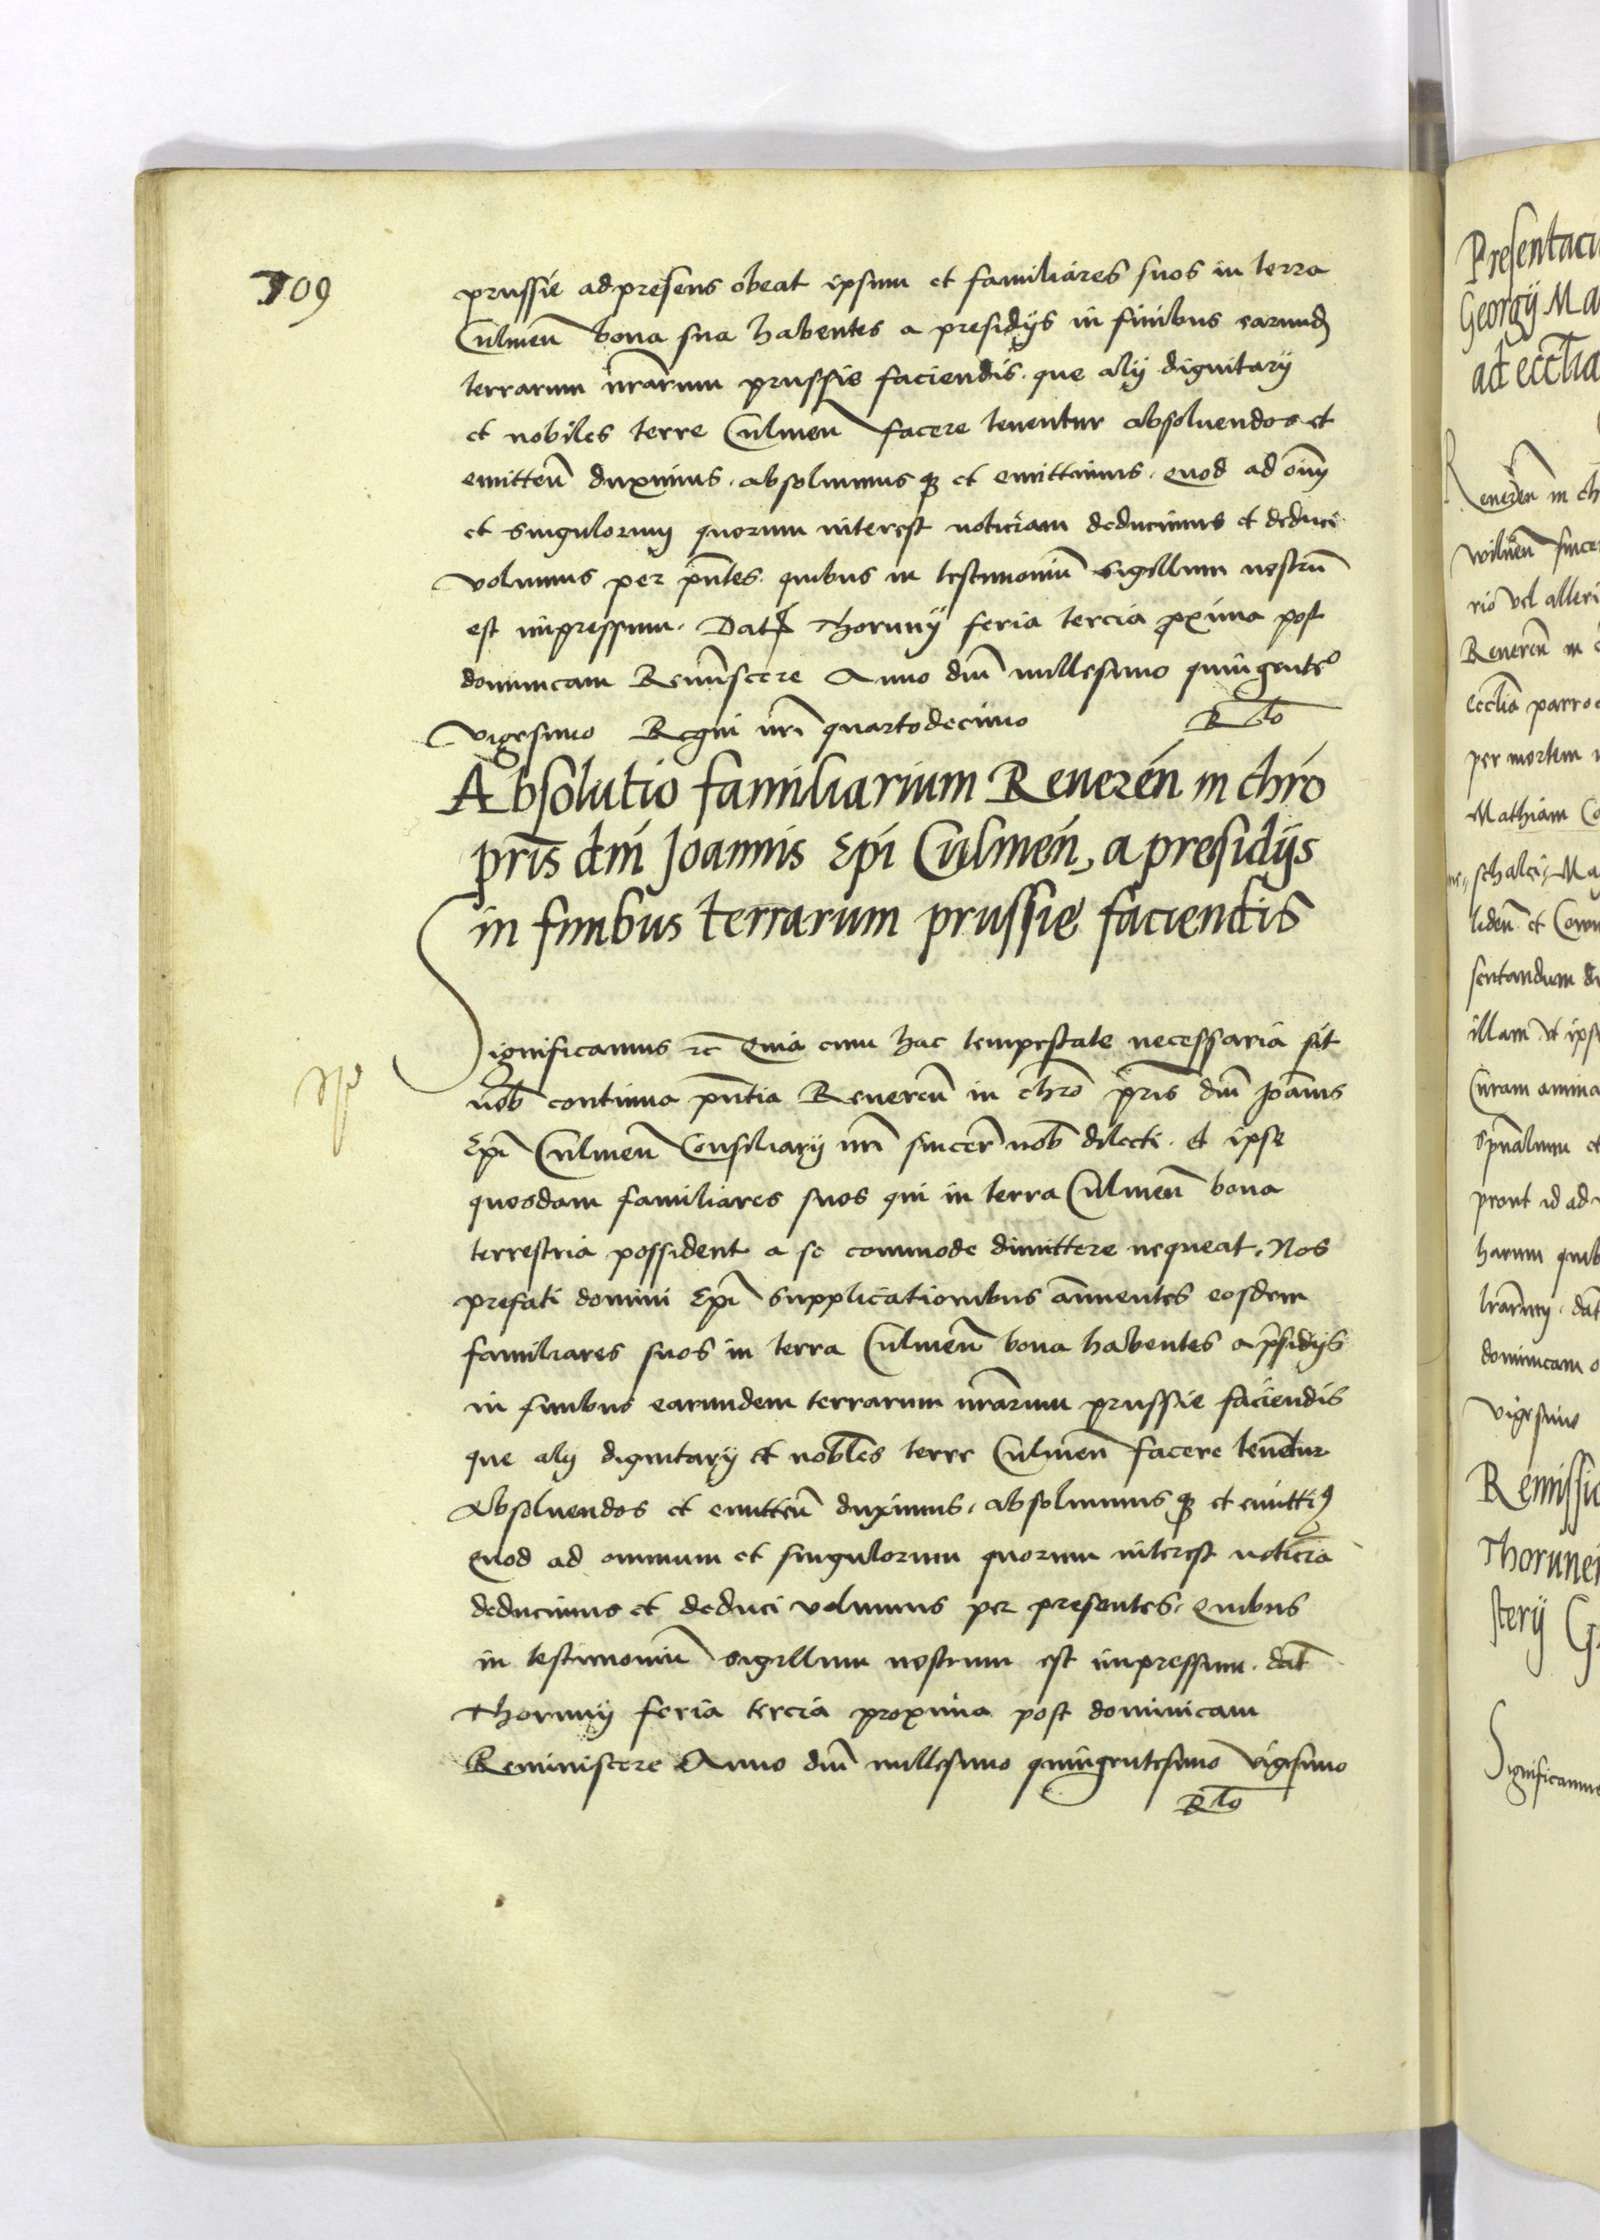 709
prussie ad presens obeat ipsum et familiares suos in terra
Culmeñ bona sua habentes a presidijs in finibus earund
terrarum nr̄arum prussie faciendis. que alij dignitarij
et nobiles terre Culmeñ facere tenentur absoluendos et
emitteñ duximus. absoluimus q et emittimus. Quod ad oīm
et singulorum quorum interest noticiam deducimus et deduci
volumus per pn̄tes. quibus in testimoniū sigillum nostrū
est impressum. Dat Thorunij feria tercia proxima post
dominicam Remīscere Anno dn̄i millesimo quingentº
vigesimo Regni nr̄i quartodecimo Rto
Absolutio familiarium Reuereñ in chr̄o
pr̄is dn̄i Joannis Ep̄i Culmeñ, a presidijs
in finibus terrarum prussie faciendis
Significamus etc Quia cum hac tempestate necessaria sit
nob̄ continua pn̄tia Reuereñ in chr̄o pr̄is dn̄i Joānis
Ep̄i Culmeñ Consiliarij nr̄i sincer̄ nob̄ dilecti. et ipse
quosdam familiares suos qui in terra Culmeñ bona
terrestria possident a se commode dimittere nequeat. Nos
prefati domini Ep̄i supplicationibus ānuentes eosdem
familiares suos in terra Culmeñ bona habentes a p̄sidijs
in finibus earundem terrarum nr̄arum prussie faciendis
que alij dignitarij et nobl̄es terre Culmeñ facere tenētur
Absoluendos et emitteñ duximus. absoluimus q et emitti9
Quod ad omnium et singulorum quorum interest noticiā
deducimus et deduci volumus per presentes. Quibus
in testimoniū sigillum nostrum est impressum. dat̄
Thorunij feria tercia proxima post dominicam
Reminiscere Anno dn̄i millesimo quingentesimo vigesimo
Rto
Presentaci
Georgij Ma
ad eccl̄ia
Reuereñ in ch
wilneñ since
rio vel alteri
Reuereñ in
Eccl̄ia parro
per mortem
Mathiam Co
schalci, Ma
sentandum
illam et ips
Curam anima
prout id ad
harum quib
dominicam
vigesimo
Remissio
Thorunen
sterij G
Significamus